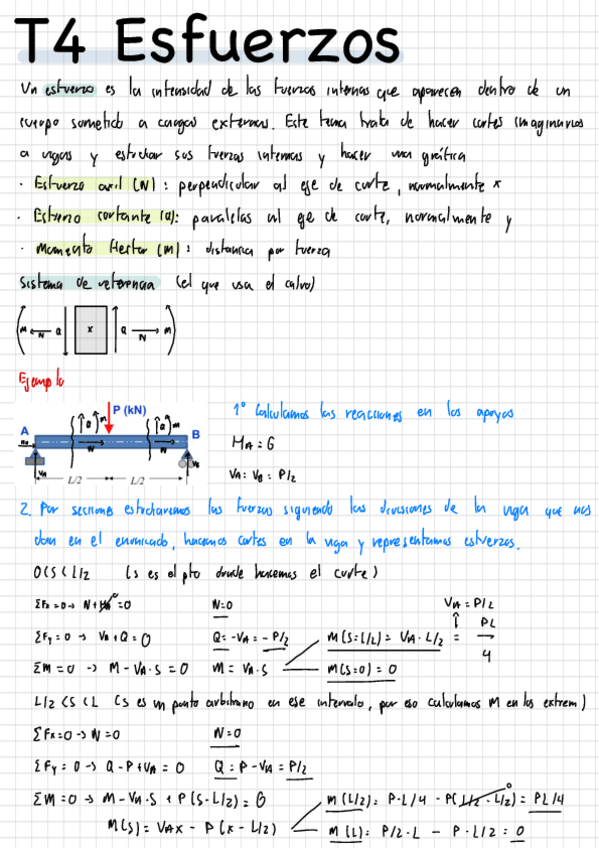 T4 Esfuerzos
Un esfuerzo es la intensidad de las fuerzas internas que aparecen dentro de un
cuerpo sometido a cargas externas. Este tema trata de hacer cortes imaginarios
a vigas y estudiar sus fuerzas internas y hacer una gráfica
· Esfuerzo axil (N) : perpendicular al eje de corte, normalmente x
· Esfuerzo cortante (Q): paralelas al eje de corte, normalmente y
· Momento flector (M) : distancia por fuerza
Sistema de referencia (el que usa el calvo)
M N Q x Q N M
Ejemplo
P (kN)
A Q M N Q M N B
VA VB
L/2 L/2
1º Calculamos las reacciones en los apoyos
HA = 0
VA = VB = P/2
2. Por secciones estudiaremos las fuerzas siguiendo las divisiones de la viga que nos
dan en el enunciado, hacemos cortes en la viga y representamos esfuerzos.
0<S<L/2 (s es el pto donde hacemos el corte)
ΣFx=0 → N+HA=0 N=0 VA = P/2
ΣFy=0 → VA+Q=0 Q=-VA=-P/2 M(S=L/2) = VA·L/2 = PL/4
ΣM=0 -> M-VA·S=0 M=VA·S M(S=0)=0
L/2<S<L (s es un punto arbitrario en ese intervalo, por eso calculamos M en los extrem)
ΣFx=0 → N=0 N=0
ΣFy=0 → Q-P+VA=0 Q=P-VA=P/2
ΣM=0 → M-VA·S+P(S-L/2)=0 M(L/2)=P·L/4-P(L/2-L/2)=PL/4
M(S)=VAx-P(x-L/2) M(L)=P/2·L-P·L/2=0